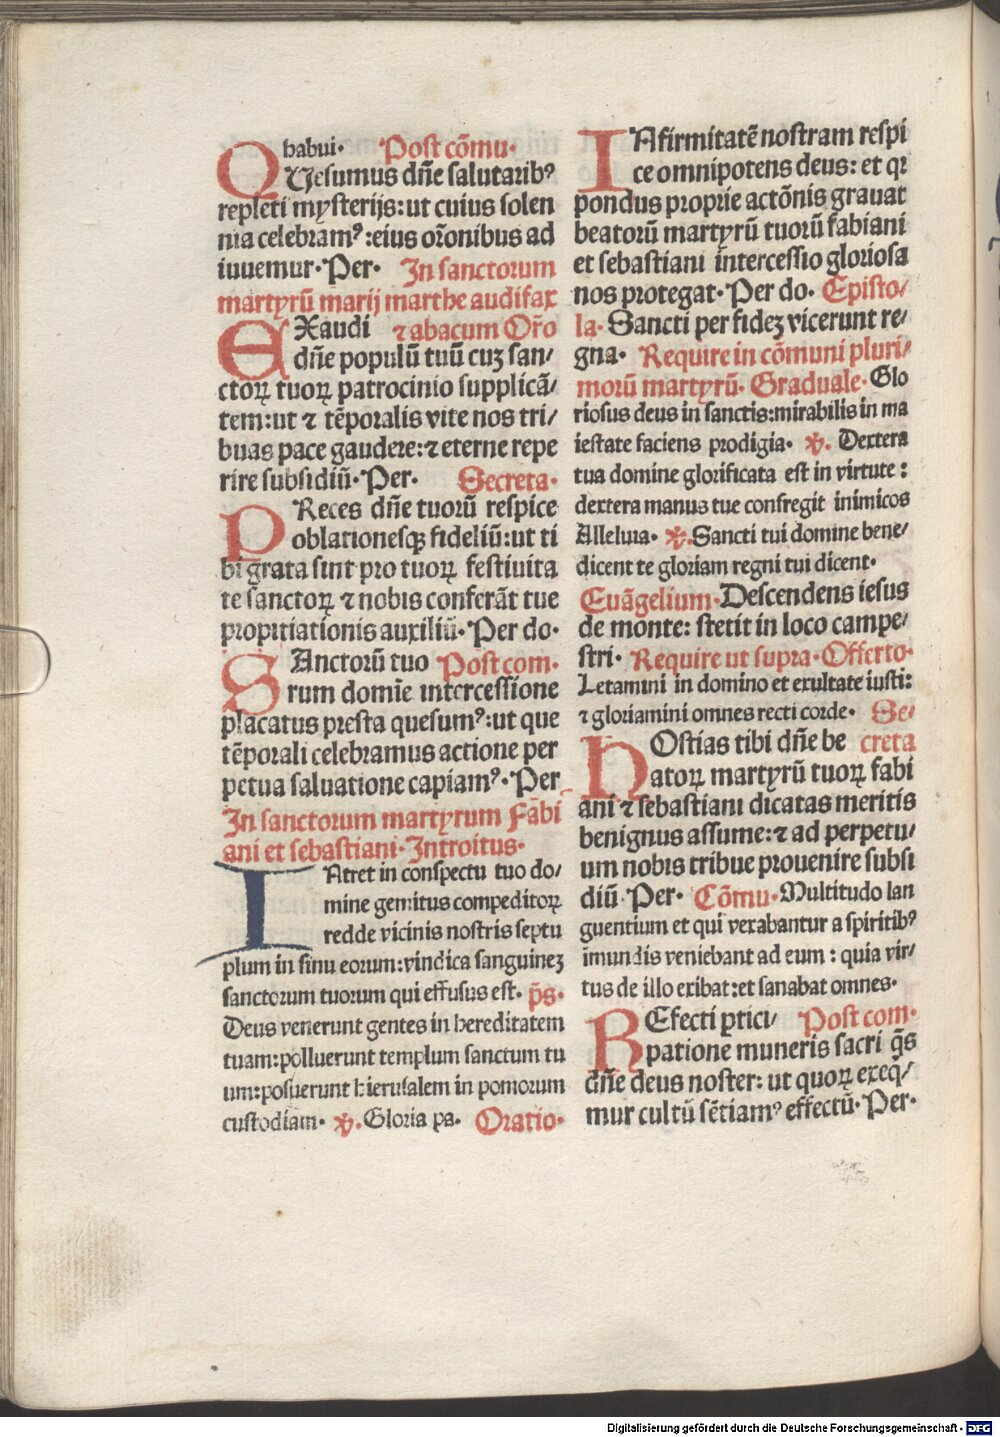 habui· Post cōmu·
QVesumus dn̄e salutaribꝰ
repleti mysterijs: ut cuius solen
nia celebramꝰ: eius or̄onibus ad
iuuemur· Per· In sanctorum
martyrū marij marthe audifax
EXaudi ⁊ abacum Or̄o
dn̄e populū tuū cuꝫ san/
ctoꝝ tuoꝝ patrocinio supplicā/
tem: ut ⁊ tēporalis vite nos tri/
buas pace gaudere: ⁊ eterne repe
rire subsidiū· Per· Secreta·
PReces dn̄e tuorū respice
oblationesqꝫ fideliū: ut ti
bi grata sint pro tuoꝝ festiuita
te sanctoꝝ ⁊ nobis conferāt tue
propitiationis auxiliū· Per do·
SAnctorū tuo Post com·
rum domīe intercessione
placatus presta quesumꝰ: ut que
tēporali celebramus actione per
petua saluatione capiamꝰ· Per
In sanctorum martyrum Fabi
ani et sebastiani· Introitus·
INtret in conspectu tuo do/
mine gemitus compeditoꝝ
redde vicinis nostris septu
plum in sinu eorum: vindica sanguineꝫ
sanctorum tuorum qui effusus est· p̄s·
Deus venerunt gentes in hereditatem
tuam: polluerunt templum sanctum tu
um: posuerunt hierusalem in pomorum
custodiam· ℣. Gloria pa· Oratio·
INfirmitatē nostram respi
ce omnipotens deus: et qꝛ
pondus proprie actōnis grauat
beatorū martyrū tuorū fabiani
et sebastiani intercessio gloriosa
nos protegat· Per do· Episto/
la· Sancti per fideꝫ vicerunt re/
gna· Require in cōmuni pluri/
morū martyrū· Graduale· Glo
riosus deus in sanctis: mirabilis in ma
iestate faciens prodigia· ℣. Dextera
tua domine glorificata est in virtute:
dextera manus tue confregit inimicos
Alleluia· ℣. Sancti tui domine bene/
dicent te gloriam regni tui dicent·
Euāgelium· Descendens iesus
de monte: stetit in loco campe/
stri· Require ut supra· Offerto·
Letamini in domino et exultate iusti:
⁊ gloriamini omnes recti corde· Se/
HOstias tibi dn̄e be creta
atoꝝ martyrū tuoꝝ fabi
ani ⁊ sebastiani dicatas meritis
benignus assume: ⁊ ad perpetu/
um nobis tribue prouenire subsi
diū· Per· Cōmu· Multitudo lan
guentium et qui vexabantur a spiritibꝰ
imundis veniebant ad eum: quia vir/
tus de illo exibat: et sanabat omnes·
REfecti ꝑtici/ Post com·
patione muneris sacri q̄s
dn̄e deus noster: ut quoꝝ exeq̄/
mur cultū sētiamꝰ effectū· Per·
Digitalisierung gefördert durch die Deutsche Forschungsgemeinschaft - DFG